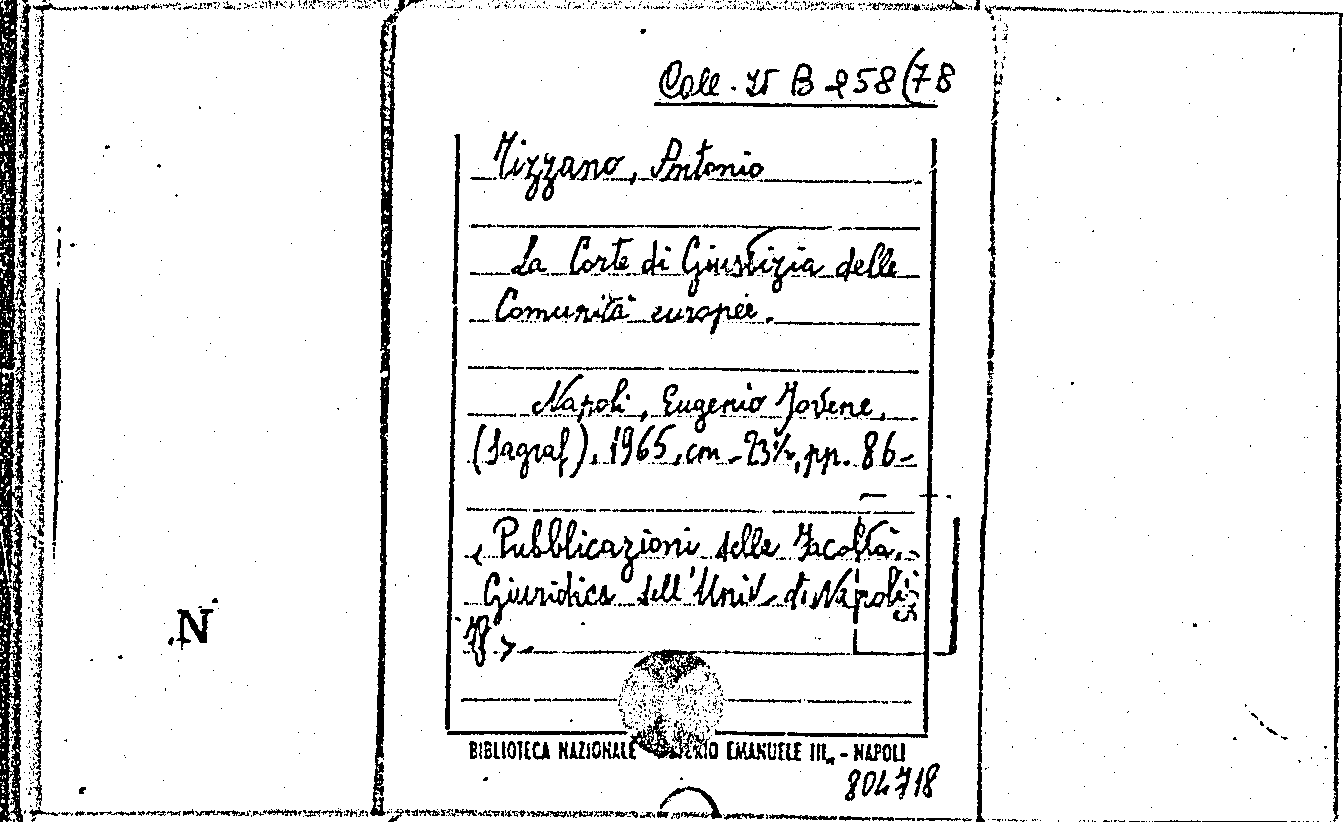 Coll. 75 B 258(78
Tizzano, Antonio
La Corte di Giustizia delle
Comunità europee.
Napoli, Eugenio Jovene,
(Sagraf), 1965, cm. 23½, pp. 86-
< Pubblicazioni della Facoltà
Giuridica dell'Univ. di Napoli
78 >.
N
BIBLIOTECA NAZIONALE EMANUELE III. - NAPOLI
804718